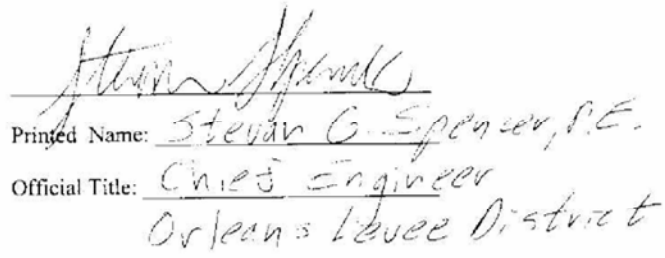 Stevan Spencer
Printed Name: Stevan G. Spencer, P.E.
Official Title: Chief Engineer
Orleans Levee District